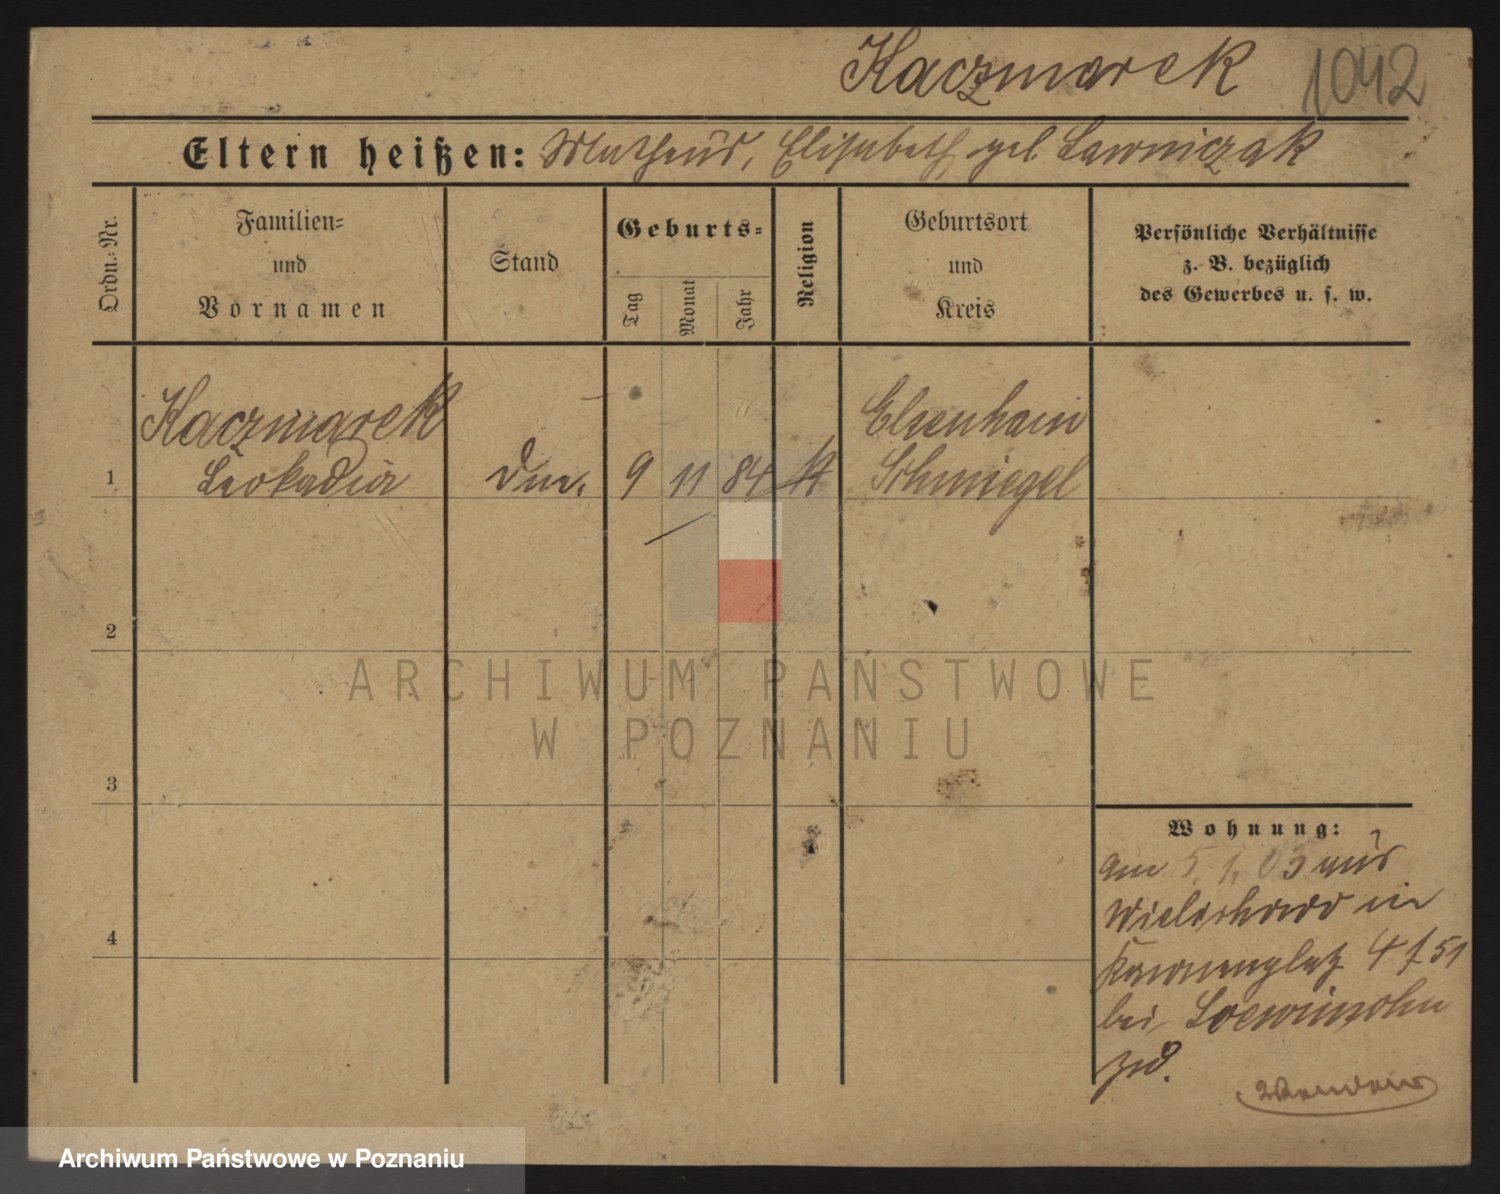 Kaczmarek 1042
Eltern heißen: Matheus, Elisabeth, geb. Lawniczak
Ordn.-Nr.
Familien-
und
Vornamen
Stand
Geburts-
Tag
Monat
Jahr
Religion
Geburtsort
und
Kreis
Persönliche Verhältnisse
z. B. bezüglich
des Gewerbes u. s. w.
Kaczmarek Elsenhain
1 Leokadia 9 11 84 Schmiegel
2
ARCHIWUM PAŃSTWOWE
W POZNANIU
3
4
Wohnung:
am 5. 1. 03 aus
in
4 51
bei
zu.
Archiwum Państwowe w Poznaniu